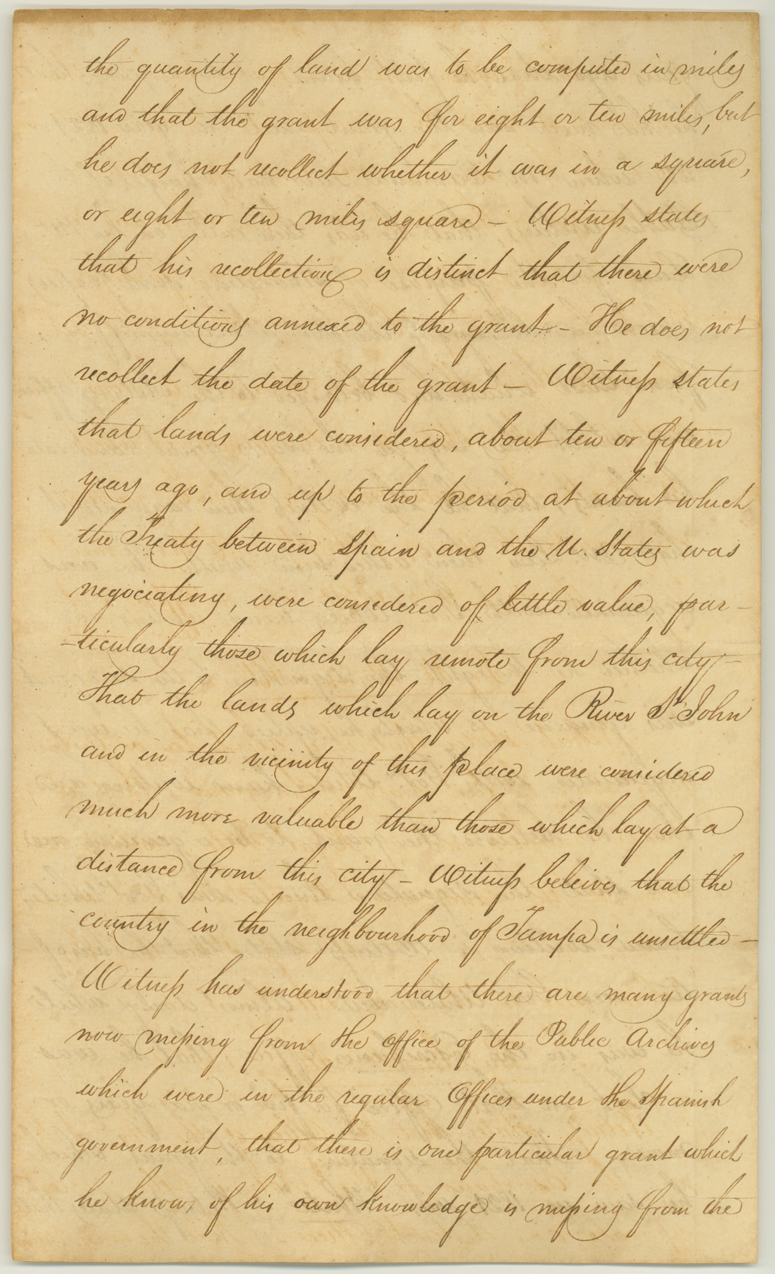 the quantity of land was to be computed in miles
and that the grant was for eight or ten miles, but
he does not recollect whether it was in a square,
or eight or ten miles square – Witness states
that his recollection is distinct that there were
no conditions annexed to the grant – He does not
recollect the date of the grant – Witness states
that lands were considered, about ten or fifteen
years ago, and up to the period at about which
the Treaty between Spain and the U. States was
negociating, were considered of little value, par-
-ticularly those which lay remote from this city –
That the lands which lay on the River St. John
and in the vicinity of this place were considered
much more valuable than those which lay at a
distance from this city – Witness beleives that the
country in the neighbourhood of Tampa is unsettled –
Witness has understood that there are many grants
now missing from the office of the Public Archives
which were in the regular Offices under the Spanish
government, that there is one particular grant which
he knows of his own knowledge is missing from the